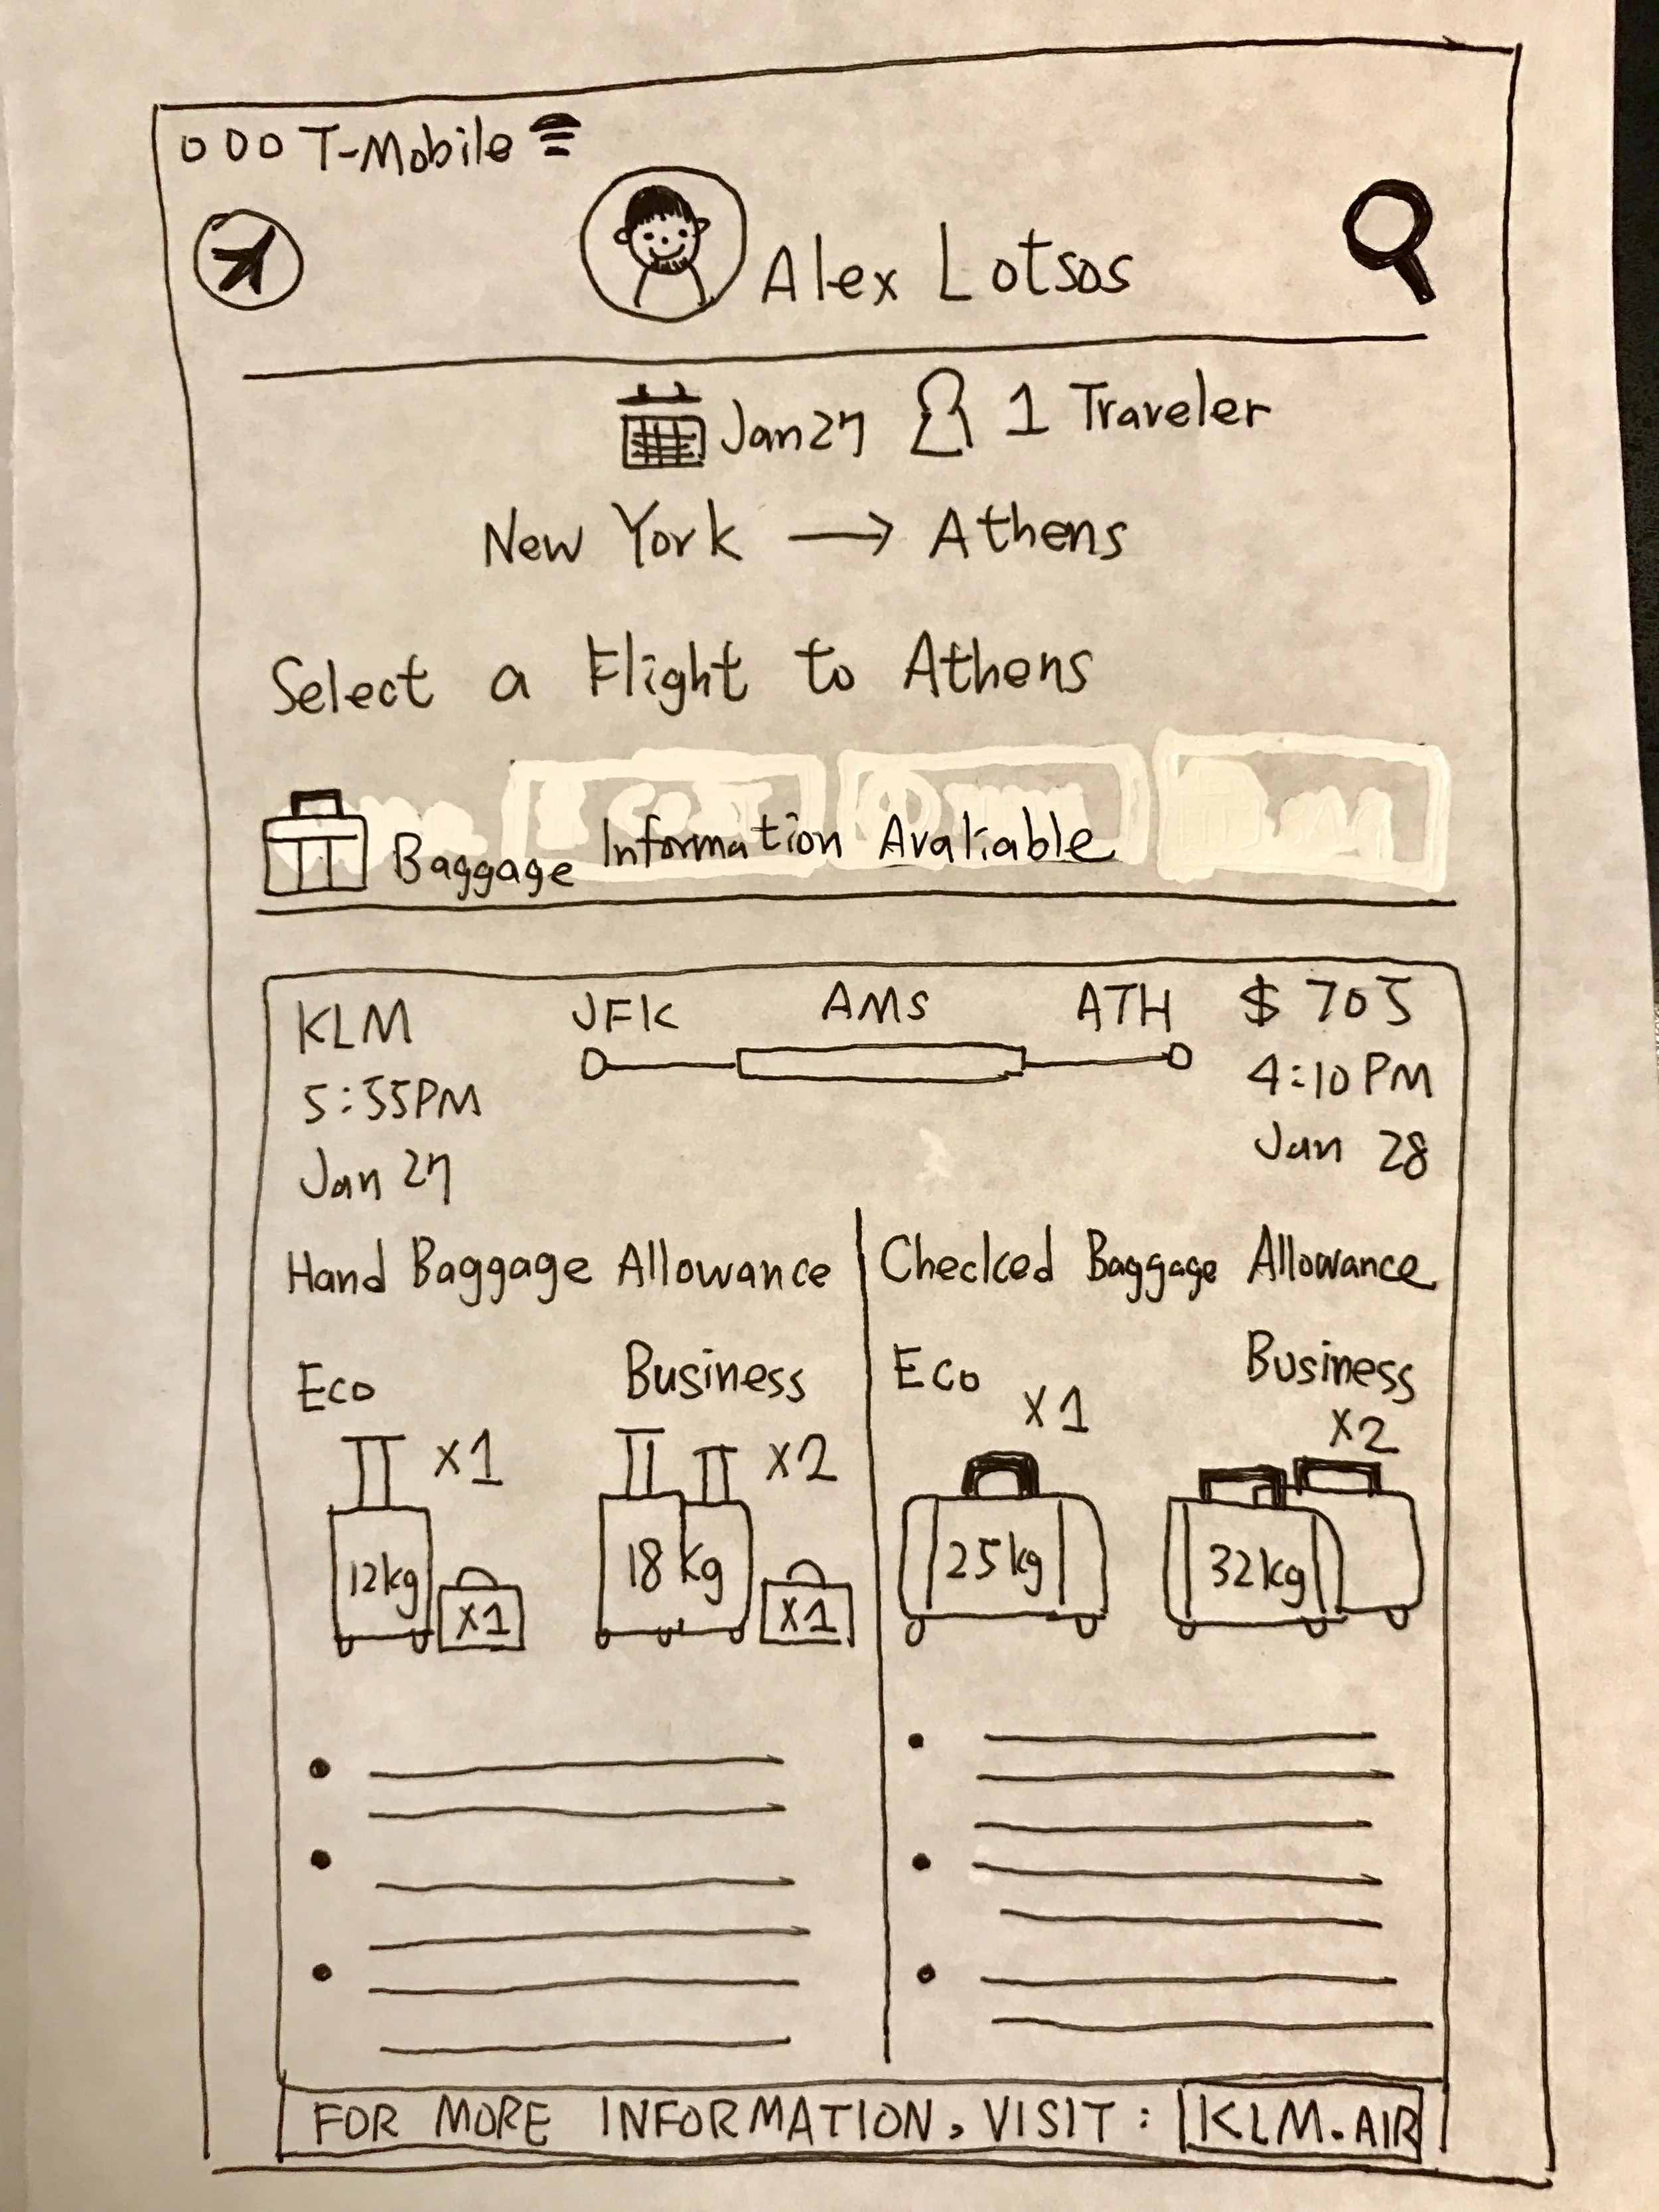 T-Mobile
Alex Lotsos
Jan 27 1 Traveler
New York → Athens
Select a Flight to Athens
Baggage Information Avaliable
KLM JFK AMS ATH $705
5:55PM 4:10PM
Jan 27 Jan 28
Hand Baggage Allowance Checked Baggage Allowance
Eco Business Eco Business
X1 X2 X1 X2
12kg 18kg 25kg 32kg
X1 X1
FOR MORE INFORMATION, VISIT: KLM.AIR